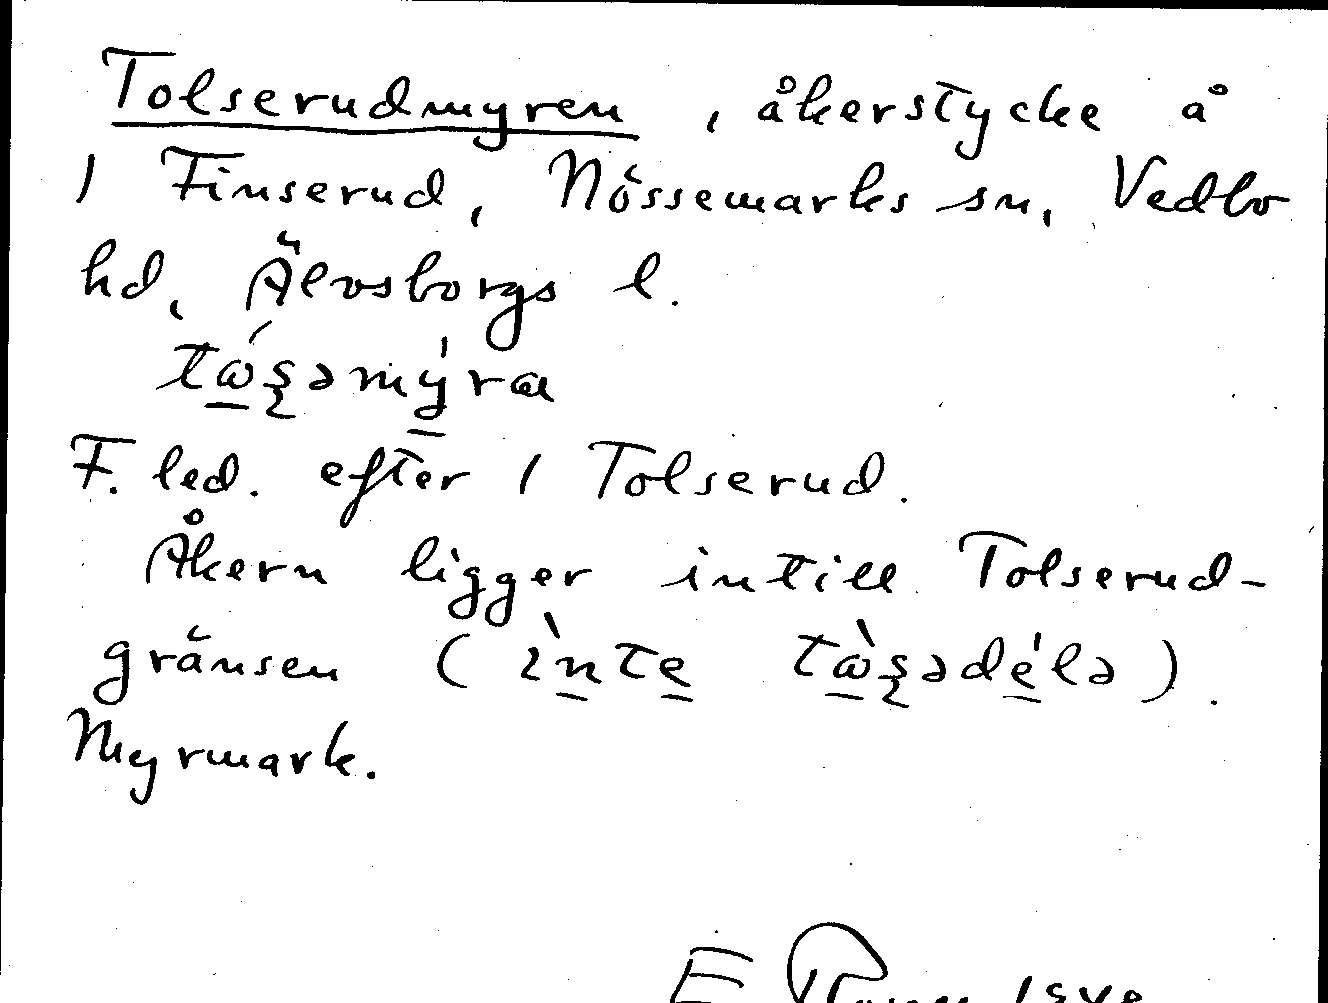 Tolserudmyren, åkerstycke å
1 Finserud, Nössemarks sn, Vedbo
hd, Älvsborgs l.
tώ̲ʂəmý̲ra
F. led. efter 1 Tolserud.
Åkern ligger intill Tolserud-
gränsen (ìn̲te̲ tὼ̲ʂədé̲lə).
Myrmark.
E